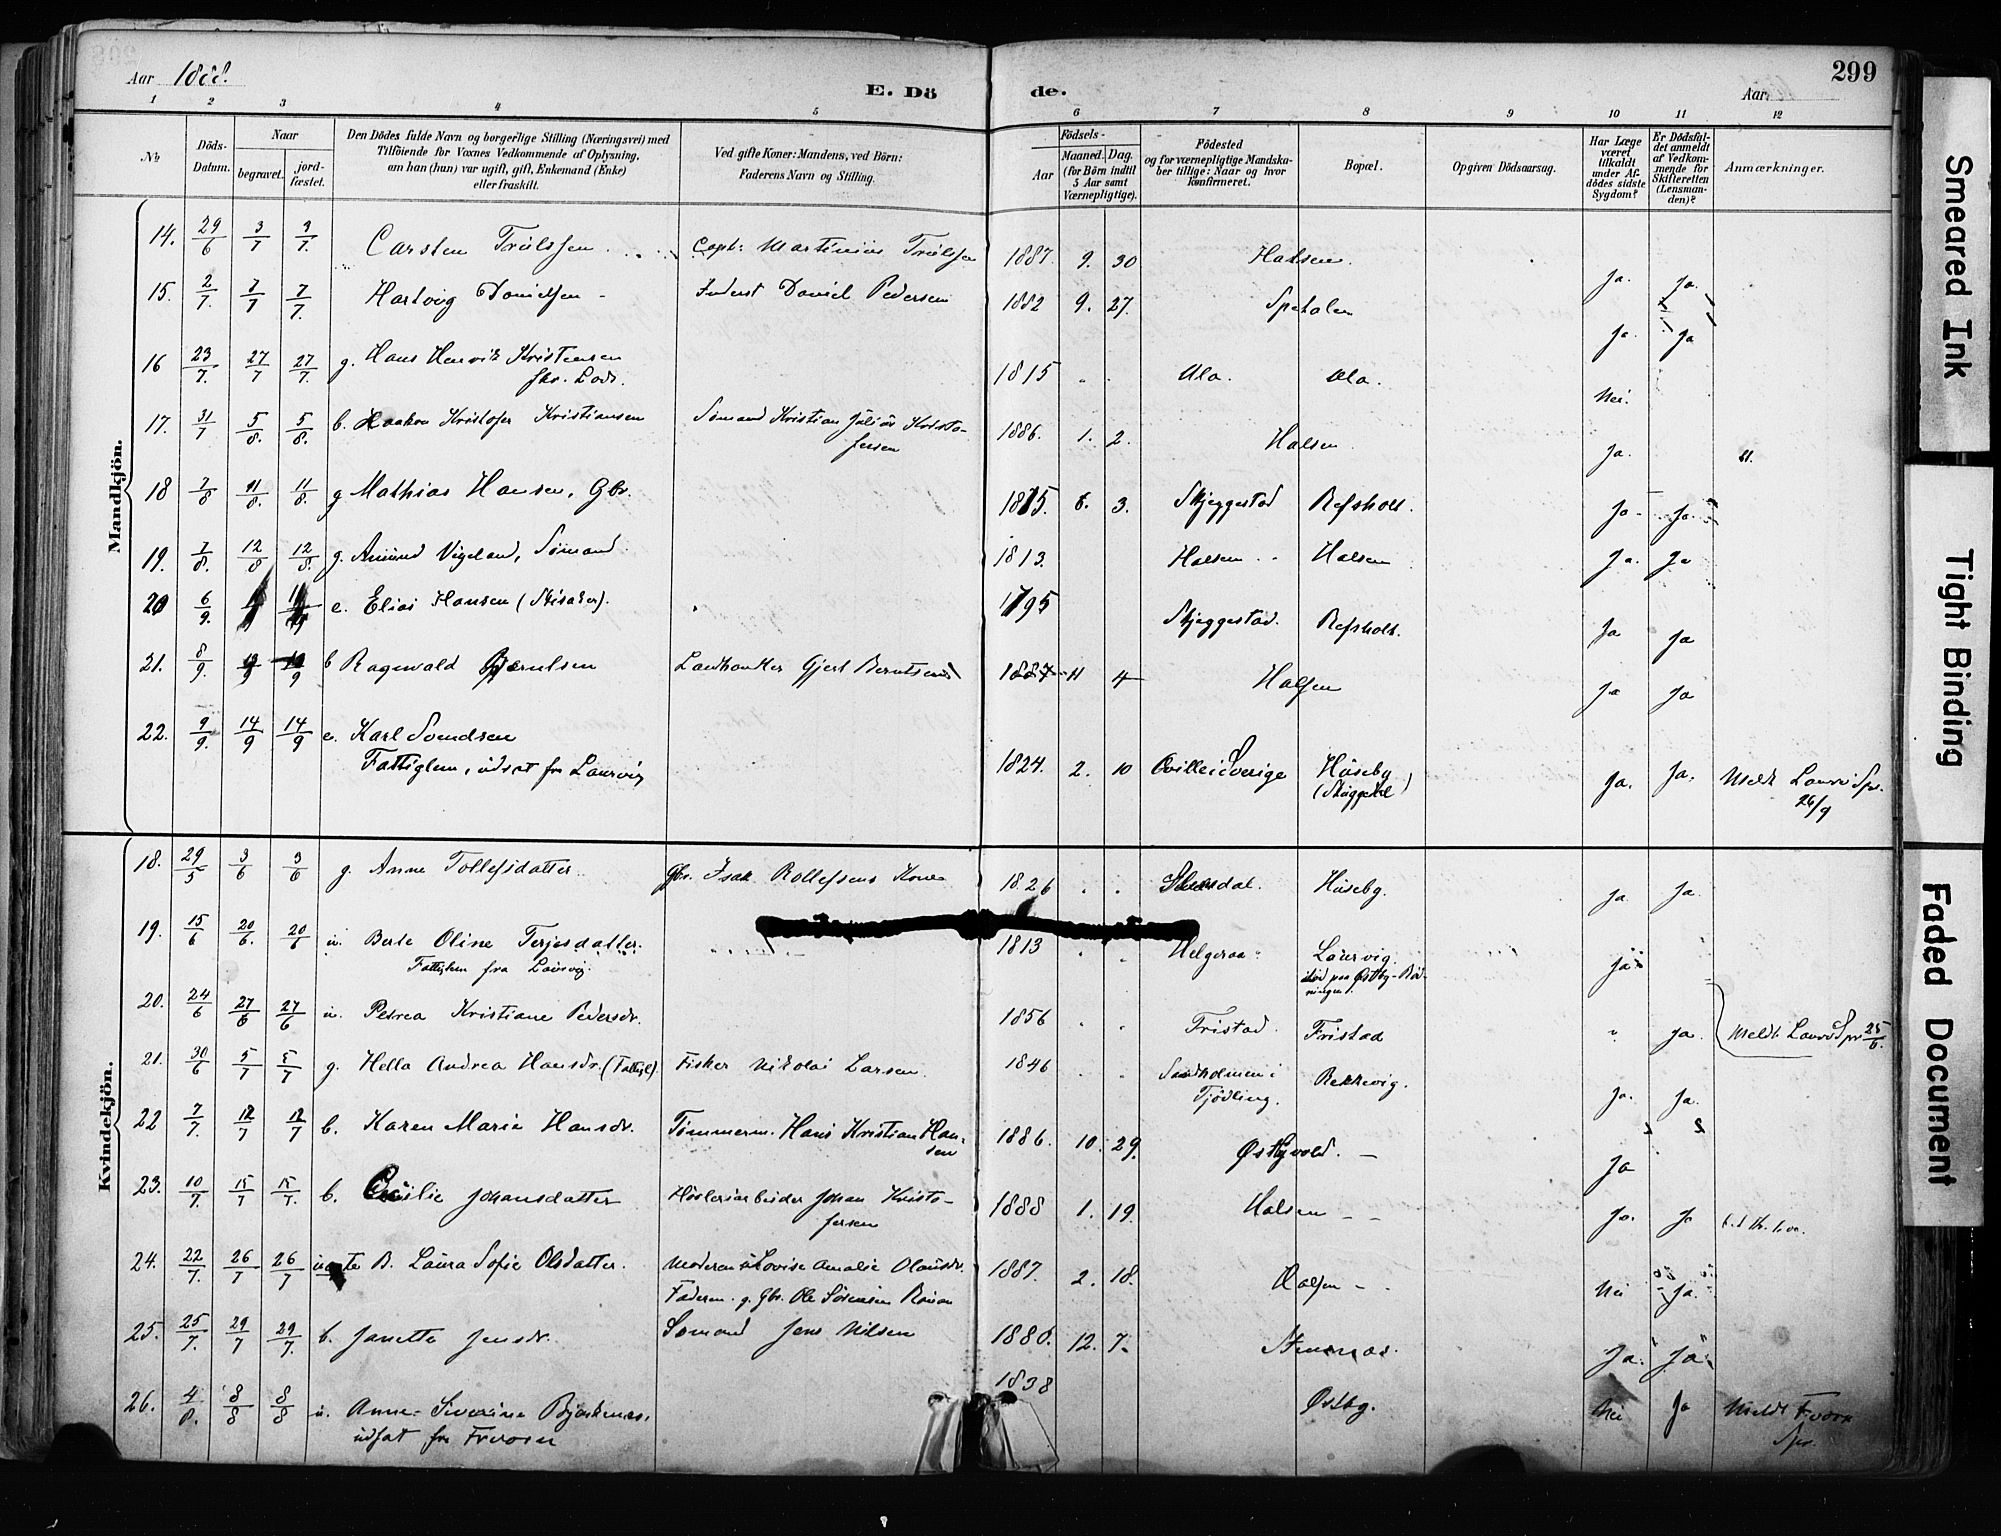 Aar 1888. E. Dö de. Aar 299
1 2 3 4 5 6 7 8 9 10 11 12
№ Döds-Datum. Naar begravet. jordfæstet. Den Dödes fulde Navn og borgerlige Stilling (Næringsvei) med Tilföiende for Voxnes Vedkommende af Oplysning, om han (hun) var ugift, gift, Enkemand (Enke) eller fraskilt. Ved gifte Koner: Mandens, ved Börn: Faderens Navn og Stilling. Födsels- Aar Maaned. Dag. (for Börn indtil 5 Aar samt Værnepligtige). Födested og for værnepligtige Mandskaber tillige: Naar og hvor konfirmeret. Bopæl. Opgiven Dödsaarsag. Har Læge været tilkaldt under Afdödes sidste Sygdom? Er Dödsfaldet anmeldt af Vedkommende for Skifteretten (Lensmanden)? Anmærkninger.
Mandkjön.
14. 29/6 3/7 9/7. Carsten Trulssen Capt. Martinius Trulssen 1887. 9. 30 Halsen. Ja. Ja.
15. 2/7. 7/7 7/7. Hartvig Danielsen Inderst Daniel Pedersen 1882 9. 27. Ja. Ja
16 23/7. 27/7 27/7. g. Hans Henrik Kristensen
fhv. Lods. 1815 Ula. Ula. Nei.
17. 31/7 5/8. 5/8. b. Haakon Kristofer Kristiansen Sømand Kristian Julius Kristo-
fersen 1886. 1. 2. Halsen Ja.
18 7/8 11/8. 11/8. g Mathias Hansen, Gbr. 1815. 6. 3. Skjeggestad Refsholt. Ja Ja.
19. 7/8. 12/8 12/8. g. Amund Vigeland, Sømand. 1813. Halsen Halsen Ja. Ja
20 6/9. e. Elias Hansen 1795 Skjeggestad. Refsholt. Ja Ja
21. 8/9. b Ragnvald Gjertsen Gjert Berntsen 1887 11 4 Halsen Ja Ja
22. 9/9. 14/9 14/9 e. Karl Svendsen
Fattiglem, udsat fr Laurvig 1824. 2. 10 Huseby Ja. Ja. Meldt Laurv. Spr.
26/9
Kvindekjön.
18. 29/5 3/6 3/6 g. Anne Tollefsdatter. Gbr. Isak Rollefsens Kone 1826 Huseby. Ja Ja.
19. 15/6 20/6. 20/6 u. Berte Oline Terjesdatter.
Fattiglem fra Laurvig. 1813 Helgeraa Laurvig. Ja
20. 24/6 27/6 27/6 u. Petrea Kristiane Pedersdr. 1856 Fristad. Fristad Ja. Meldt Laurv. Spr 25/6.
21. 30/6 5/7 5/7 g. Hella Andrea Hansdr. (Fattigl) Fisker Nikolai Larsen. 1846 Sandholmen i
Tjödling. Rekkevig. Ja. Ja.
22 7/7. 12/7 12/7 b. Karen Marie Hansdr. Tømmerm. Hans Kristian Han-
sen 1886. 10. 29. Østbyvold. Ja
23. 10/7. 15/7 15/7. b. Cecilie Johansdatter Høvleriarbeider Johan Kristo-
fersen 1888 1. 19. Halsen Ja. Ja
24. 22/7. 26/7 26/7 uægte B. Laura Sofie Olsdatter. Moderen u Lovise Amalie Olausdr.
Faderen. g. Gbr. Ole Sørensen 1887. 2. 18. Halsen Nei Ja.
25. 25/7. 29/7 29/7. b. Janette Jensdr. Sømand Jens Nilsen 1886. 12. 7. Ja. Ja
26. 4/8. 8/8 8/8 u. Anne Siverine Bjerkenes,
udsat fra Fredværn 1838 Østby. Nei Ja Meldt
Spr.
Smeared Ink
Tight Binding
Faded Document